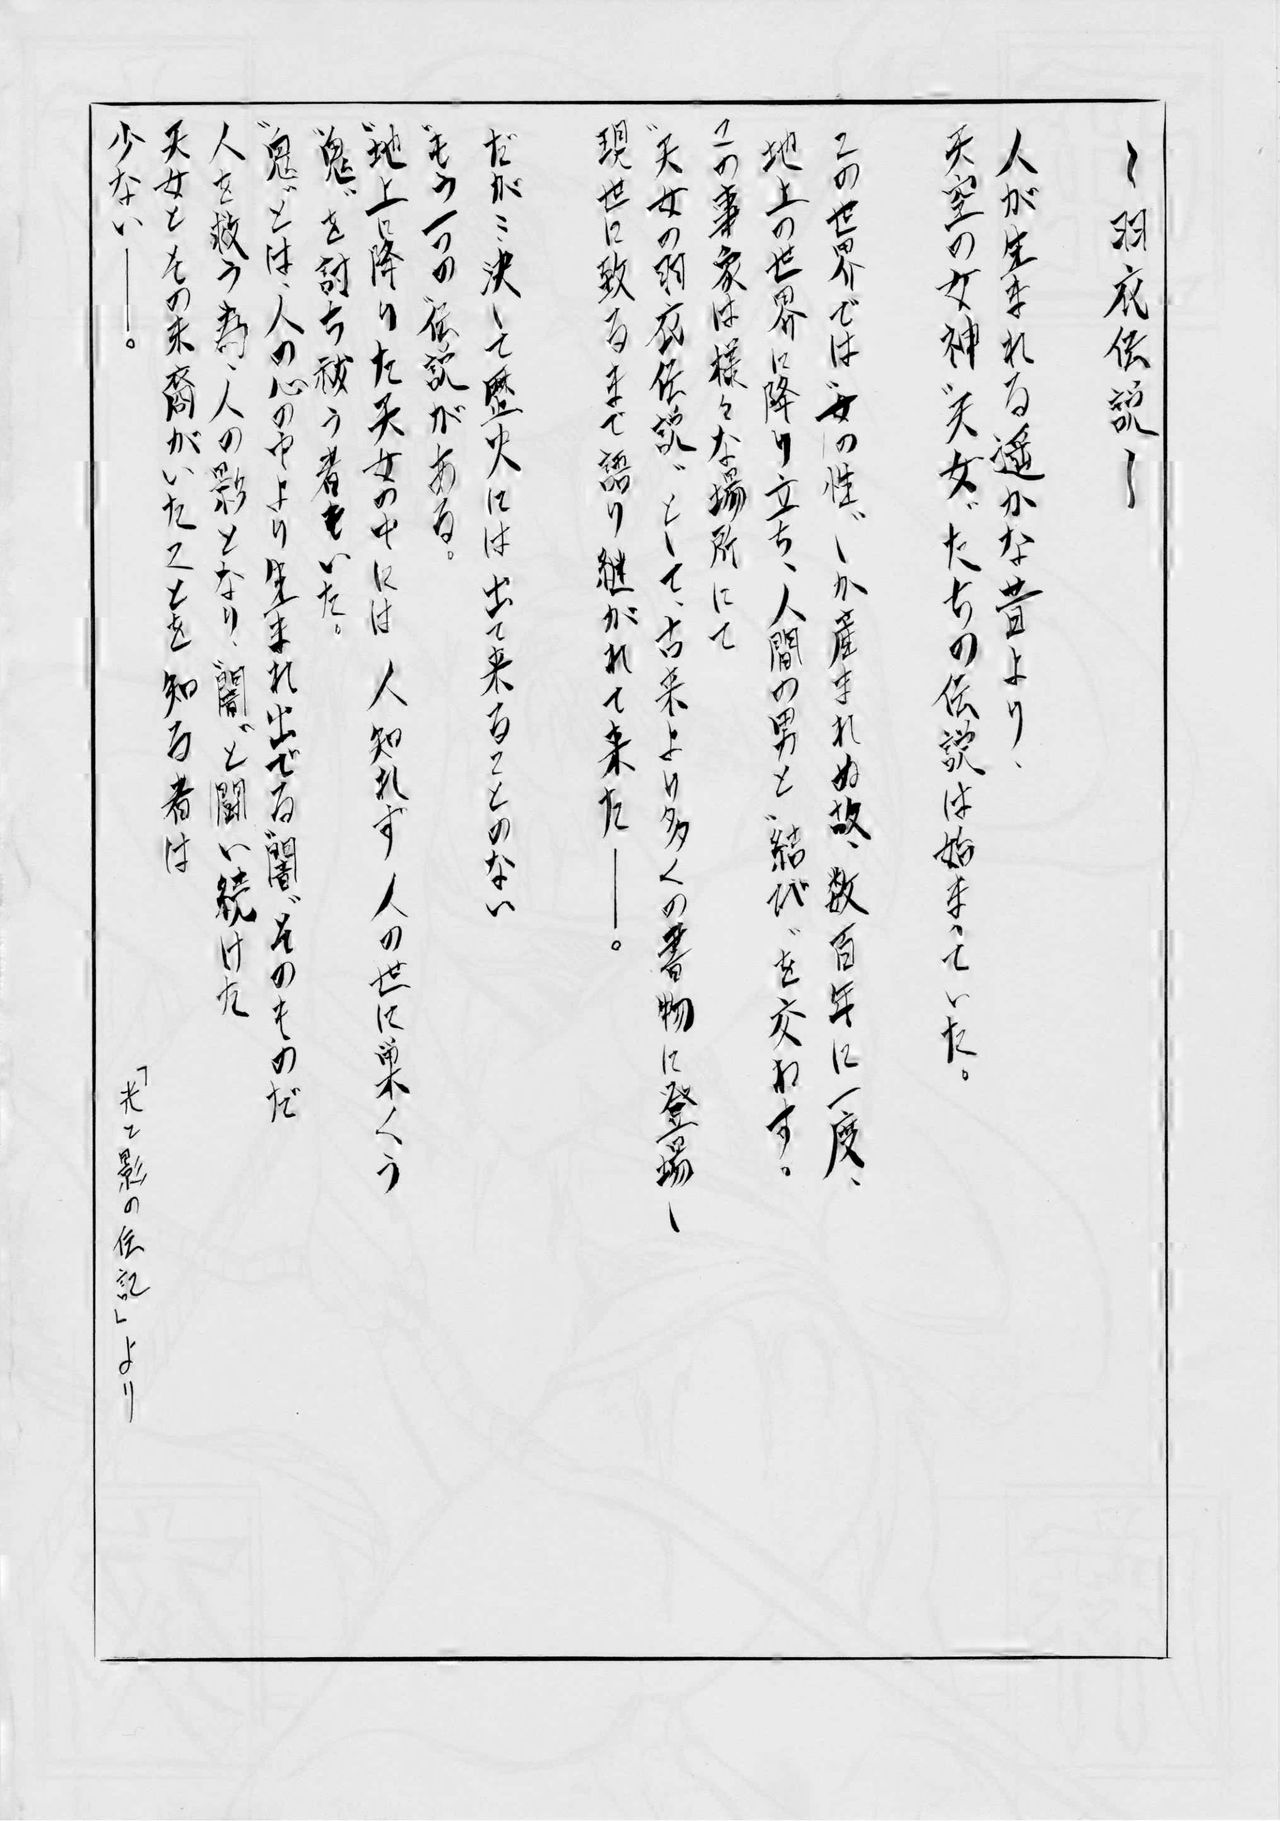 〜羽衣伝説〜
人が生まれる遥かな昔より、
天空の女神〝天女〟たちの伝説は始まっていた。
この世界では〝女の性〟しか産まれぬ故、数百年に一度、
地上の世界に降り立ち、人間の男と〝結び〟を交わす。
この事象は様々な場所にて
〝天女の羽衣伝説〟として、古来より多くの書物に登場し
現世に致るまで語り継がれて来た――。
だが…決して歴史には出て来ることのない
〝もう一つの〟伝説がある。
〝地上に降りた天女の中には 人知れず 人の世に巣くう
〝鬼〟を討ち祓う者もいた。
〝鬼〟とは、人の心の中より生まれ出でる〝闇〟そのものだ
人を救う為、人の影となり、〝闇〟と闘い続けた
天女とその末裔がいたことを知る者は
少ない――。
「光と影の伝記」より